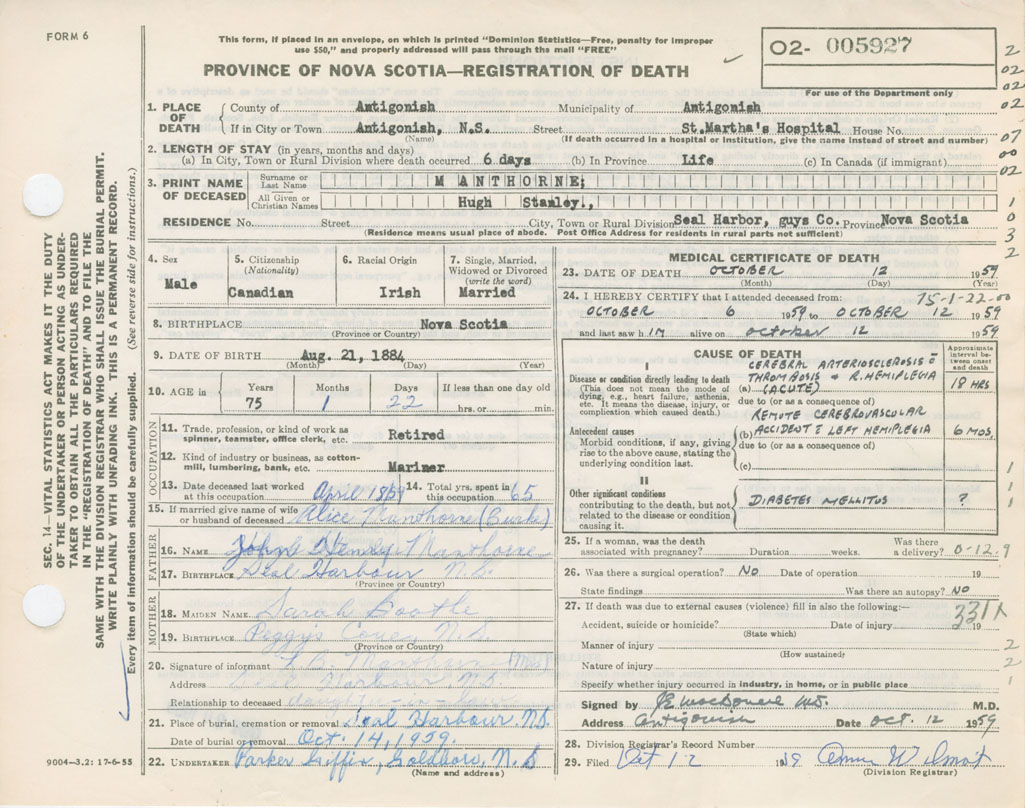 FORM 6
This form, if placed in an envelope, on which is printed "Dominion Statistics—Free, penalty for improper
use $50," and properly addressed will pass through the mail "FREE"
PROVINCE OF NOVA SCOTIA—REGISTRATION OF DEATH
02- 005927
For use of the Department only
1. PLACE OF DEATH County of Antigonish Municipality of Antigonish
If in City or Town Antigonish, N.S. Street St.Martha's Hospital House No.
(Name) (If death occurred in a hospital or institution, give the name instead of street and number)
2. LENGTH OF STAY (in years, months and days)
(a) In City, Town or Rural Division where death occurred 6 days (b) In Province Life (c) In Canada (if immigrant)
3. PRINT NAME OF DECEASED Surname or Last Name MANTHORNE;
All Given or Christian Names Hugh Stanley.,
RESIDENCE No. Street City, Town or Rural Division Seal Harbor, guys Co. Province Nova Scotia
(Residence means usual place of abode. Post Office Address for residents in rural parts not sufficient)
2
02
02
02
07
00
02
1
0
3
2
SEC. 14—VITAL STATISTICS ACT MAKES IT THE DUTY
OF THE UNDERTAKER OR PERSON ACTING AS UNDER-
TAKER TO OBTAIN ALL THE PARTICULARS REQUIRED
IN THE "REGISTRATION OF DEATH" AND TO FILE THE
SAME WITH THE DIVISION REGISTRAR WHO SHALL ISSUE THE BURIAL PERMIT.
WRITE PLAINLY WITH UNFADING INK. THIS IS A PERMANENT RECORD.
Every item of information should be carefully supplied. (See reverse side for instructions.)
4. Sex
Male
5. Citizenship
(Nationality)
Canadian
6. Racial Origin
Irish
7. Single, Married,
Widowed or Divorced
(write the word)
Married
8. BIRTHPLACE Nova Scotia
(Province or Country)
9. DATE OF BIRTH Aug. 21, 1884
(Month) (Day) (Year)
10. AGE in Years Months Days If less than one day old
75 1 22 hrs. or min.
OCCUPATION
11. Trade, profession, or kind of work as
spinner, teamster, office clerk, etc. Retired
12. Kind of industry or business, as cotton-
mill, lumbering, bank, etc. Mariner
13. Date deceased last worked
at this occupation April 18/59
14. Total yrs. spent in
this occupation 65
15. If married give name of wife
or husband of deceased Alice Manthorne (Burke)
FATHER
16. NAME John Henry Manthorne
17. BIRTHPLACE Seal Harbour N.S.
(Province or Country)
MOTHER
18. MAIDEN NAME Sarah Boothe
19. BIRTHPLACE Peggy's Cove, N.S.
(Province or Country)
20. Signature of informant Manthorne (Mrs)
Address Seal Harbour N.S.
Relationship to deceased daughter-in-law
21. Place of burial, cremation or removal Seal Harbour. N.S.
Date of burial or removal Oct. 14, 1959.
22. UNDERTAKER Parker Giffin, Goldboro, N.S
(Name and address)
9004—3.2: 17-6-55
MEDICAL CERTIFICATE OF DEATH
23. DATE OF DEATH OCTOBER 12 1959
(Month) (Day) (Year)
24. I HEREBY CERTIFY that I attended deceased from: 75-1-22-00
OCTOBER 6 1959 to OCTOBER 12 1959
and last saw him alive on October 12 1959
CAUSE OF DEATH
Approximate interval between onset and death
I
Disease or condition directly leading to death
(This does not mean the mode of dying, e.g., heart failure, asthenia, etc. It means the disease, injury, or complication which caused death.)
CEREBRAL ARTERIOSCLEROSIS c̄
THROMBOSIS & R. HEMIPLEGIA
(a) (ACUTE) 18 HRS
due to (or as a consequence of)
Antecedent causes
Morbid conditions, if any, giving rise to the above cause, stating the underlying condition last.
REMOTE CEREBROVASCULAR
(b) ACCIDENT c̄ LEFT HEMIPLEGIA 6 MOS.
due to (or as a consequence of)
(c)
II
Other significant conditions
contributing to the death, but not related to the disease or condition causing it.
DIABETES MELLITUS ?
1
1
1
25. If a woman, was the death
associated with pregnancy? Duration weeks. Was there a delivery? 0-12.9
26. Was there a surgical operation? NO Date of operation 19
State findings Was there an autopsy? NO
27. If death was due to external causes (violence) fill in also the following:— 331X
Accident, suicide or homicide? Date of injury 19
(State which)
Manner of injury 2
(How sustained)
Nature of injury 2
Specify whether injury occurred in industry, in home, or in public place 1
Signed by MacDonald MD. M.D.
Address Antigonish Date Oct. 12 1959
28. Division Registrar's Record Number
29. Filed Oct 12 1959 Wilmot
(Division Registrar)